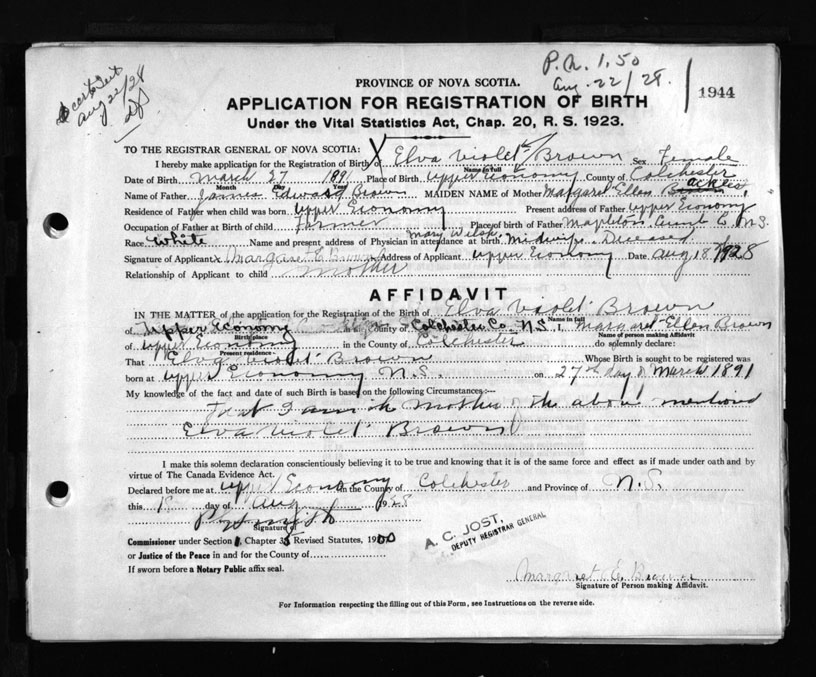 P.N. 1.50
Aug. 22/28.
Aug 22/28
1944
PROVINCE OF NOVA SCOTIA.
APPLICATION FOR REGISTRATION OF BIRTH
Under the Vital Statistics Act, Chap. 20, R. S. 1923.
TO THE REGISTRAR GENERAL OF NOVA SCOTIA:
I hereby make application for the Registration of Birth of Elva Violet Brown Sex Female
Name in full
Date of Birth March 27 1891 Place of Birth Upper Economy County of Colchester
Month Day Year
Name of Father James Edward Brown MAIDEN NAME of Mother Margaret Ellen
Residence of Father when child was born Upper Economy Present address of Father Upper Economy
Occupation of Father at Birth of child Farmer Place of birth of Father Mapleton N.S.
Race White Name and present address of Physician in attendance at birth Mary midwife Deceased
Signature of Applicant x Margaret E Brown Address of Applicant Upper Economy Date Aug 18 1928
Relationship of Applicant to child mother
AFFIDAVIT
IN THE MATTER of the application for the Registration of the Birth of Elva Violet Brown
Name in full
of Upper Economy in County of Colchester Co. N.S. I, Margaret Ellen Brown
Birth place Name of person making Affidavit
of Upper Economy in the County of Colchester do solemnly declare:
Present residence
That Elva Violet Brown Whose Birth is sought to be registered was
born at Upper Economy N.S. on 27th day of March 1891
My knowledge of the fact and date of such Birth is based on the following Circumstances:—
That I am the Mother of the above mentioned
Elva Violet Brown
I make this solemn declaration conscientiously believing it to be true and knowing that it is of the same force and effect as if made under oath and by
virtue of The Canada Evidence Act.
Declared before me at Upper Economy in the County of Colchester and Province of N.S.
this day of Aug 1928
Signature of
Commissioner under Section 1, Chapter 35 Revised Statutes, 1900
or Justice of the Peace in and for the County of
If sworn before a Notary Public affix seal.
A. C. JOST,
DEPUTY REGISTRAR GENERAL
Margaret E. Brown
Signature of Person making Affidavit.
For Information respecting the filling out of this Form, see Instructions on the reverse side.